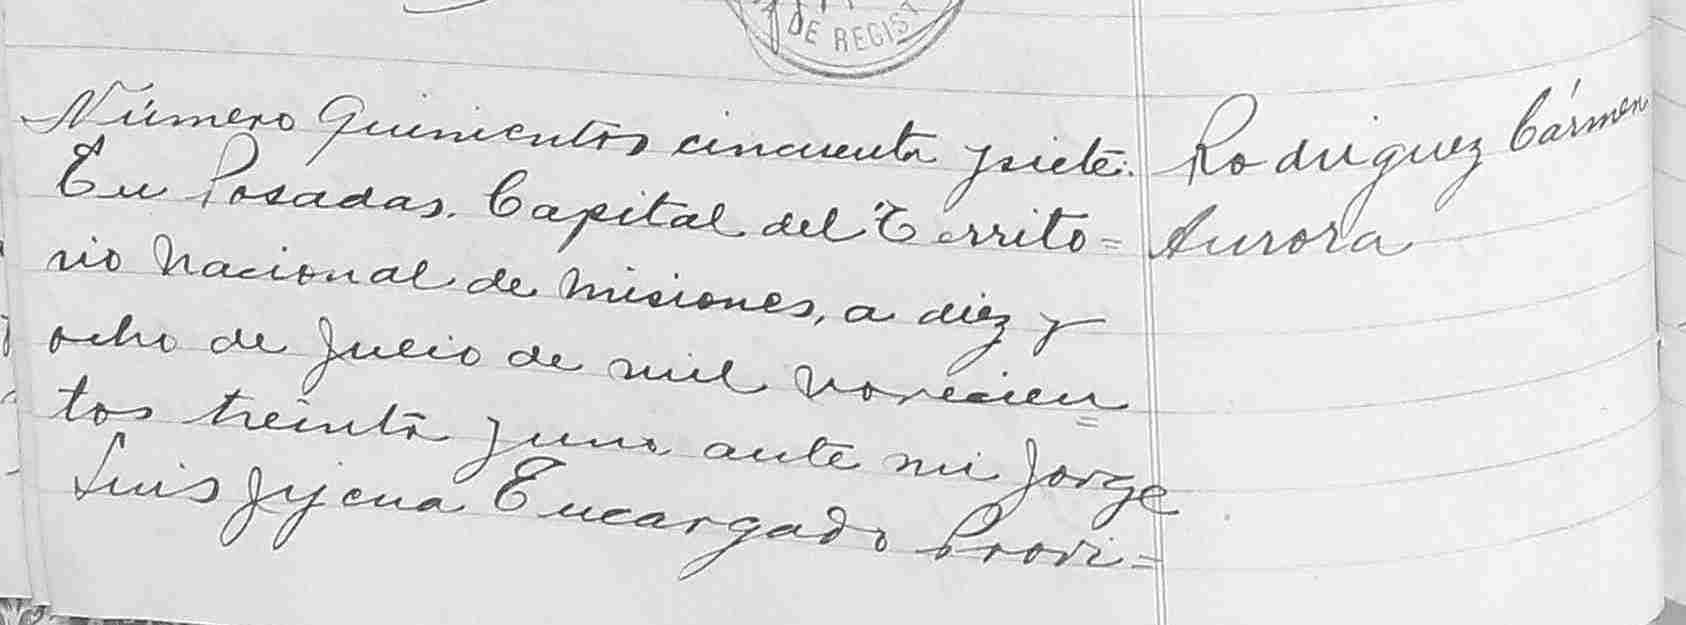 DE REGIST
Número Quinientos cincuenta y siete:
En Posadas. Capital del Territo=
rio Nacional de Misiones, a diez y
ocho de Julio de mil novecien=
tos treinta y uno ante mi Jorge
Luis Jijena Encargado Provi=
Rodriguez Cármen
Aurora